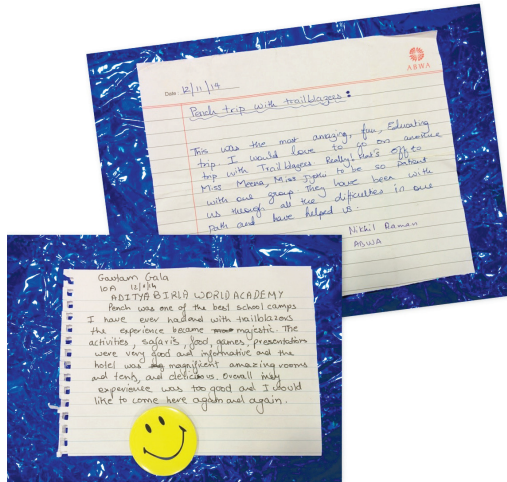 ABWA
Date 12/11/14
Pench trip with trailblazers :
This was the most amazing, fun, Educating
trip. I would love to go on another
trip with Trailblazers. Really hat's off to
Miss Meena, Miss Jyoti to be so patient
with our group. They have been with
us through all the difficulties in our
path and have helped us.
Nikhil Raman
ABWA
Gautam Gala
10A 12/11/14
ADITYA BIRLA WORLD ACADEMY
Pench was one of the best school camps
I have ever had and with trailblazers
the experience became majestic. The
activities, safaris, food, games, presentations
were very good and informative and the
hotel was magnificent amazing rooms
and tents, and delicious. Overall my
experience was too good and I would
like to come here again and again.